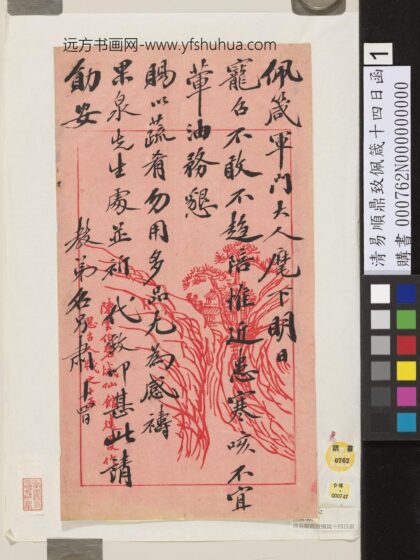 远方书画网-www.yfshuhua.com
佩箴軍門大人麾下明日
寵召不敢不趨陪惟近患寒咳不宜
葷油務懇
賜以蔬肴勿用多品尤為感禱
果泉先生處並祈代致叩甚此請
勛安
教弟名另肅 十四
清易順鼎致佩箴十四日函
購書 000762N000000000
1
購書
0762
000747